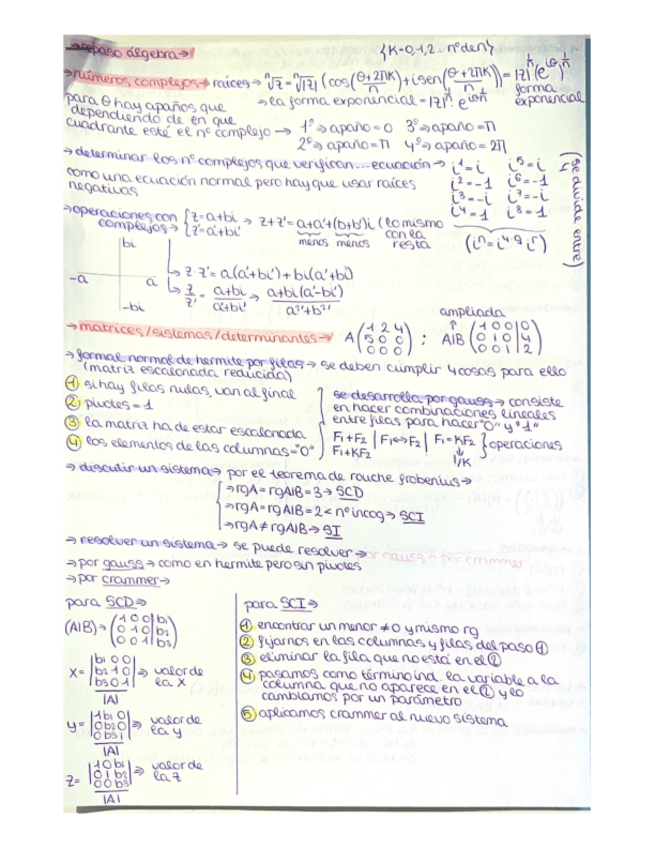 →repaso álgebra→
{K=0,1,2...nºden}
→números complejos→ raíces→ ⁿ√z=ⁿ√|z| (cos(θ+2πK/n)+isen(θ+2πK/n))=|z|^(1/n)(e^(iθ))^(1/n)
forma exponencial
→la forma exponencial=|z|^(1/n) · e^(iθ 1/n)
para θ hay apaños que
dependiendo de en que
cuadrante esté el nº complejo→ 1º⇒apaño=0 3º⇒apaño=π
2º⇒apaño=π 4º⇒apaño=2π
→determinar los nº complejos que verifican...ecuación→
como una ecuación normal pero hay que usar raíces
negativas
i¹=i i⁵=i
i²=-1 i⁶=-1
i³=-i i⁷=-i
i⁴=1 i⁸=1
(se divide entre 4)
(iⁿ=i^(4·q) i^r)
→operaciones con
complejos→ {z=a+bi z'=a'+bi' → z+z'=a+a'+(b+b')i (lo mismo
menos menos con la
resta
bi
-a a
-bi
→z·z'=a(a'+bi')+bi(a'+bi)
→z/z'=a+bi/a'+bi' → a+bi(a'-bi')/a²'+b²'
→matrices/sistemas/determinantes→ A(1 2 4 / 5 0 0 / 0 0 0) ; A|B (1 0 0|0 / 0 1 0|4 / 0 0 1|2)
ampliada
→formal normal de hermite por filas→ se deben cumplir 4 cosas para ello
(matriz escalonada reducida)
① si hay filas nulas, van al final
② pivotes=1
③ la matriz ha de estar escalonada
④ los elementos de las columnas="0"
se desarrolla por gauss→ consiste
en hacer combinaciones lineales
entre filas para hacer "0" y "1"
F₁+F₂ | F₁↔F₂ | F₁=KF₂ } operaciones
F₁+KF₂ 1/K
→discutir un sistema→ por el teorema de rouche frobenius→
→rgA=rgA|B=3→SCD
→rgA=rgA|B=2<nºincog→SCI
→rgA≠rgA|B→SI
→resolver un sistema→ se puede resolver→por gauss o por crammer
→por gauss→ como en hermite pero sin pivotes
→por crammer→
para SCD⇒
(A|B)→(1 0 0|b₁ / 0 1 0|b₂ / 0 0 1|b₃)
X=|b₁ 0 0 / b₂ 1 0 / b₃ 0 1|/|A| ⇒ valor de la X
y=|1 b₁ 0 / 0 b₂ 0 / 0 b₃ 1|/|A| ⇒ valor de la y
Z=|1 0 b₁ / 0 1 b₂ / 0 0 b₃|/|A| ⇒ valor de la Z
para SCI⇒
① encontrar un menor ≠0 y mismo rg
② fijarnos en las columnas y filas del paso ①
③ eliminar la fila que no está en el ②
④ pasamos como término ind. la variable a la
columna que no aparece en el ② y lo
cambiamos por un parámetro
⑤ aplicamos crammer al nuevo sistema